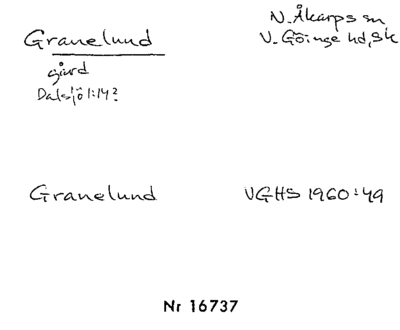 Granelund
N. Åkarps sn
V. Göinge hd, Sk
gård
Dalsjö 1:14?
Granelund
VGHS 1960:49
Nr 16737